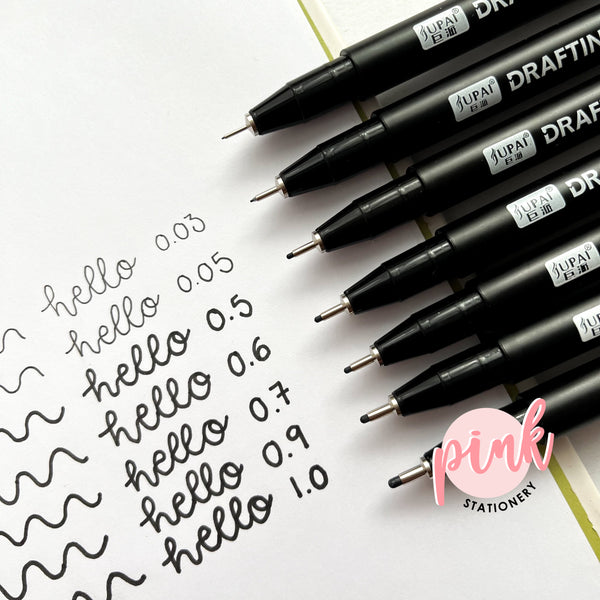 JUPAI® DRAFTIN
巨派
JUPAI® DRAFTIN
巨派
JUPAI® DRAF
巨派
JUPAI® DR
巨派
JUPAI®
巨派
JUPAI
巨派
hello 0.03
hello 0.05
hello 0.5
hello 0.6
hello 0.7
hello 0.9
hello 1.0
pink
STATIONERY